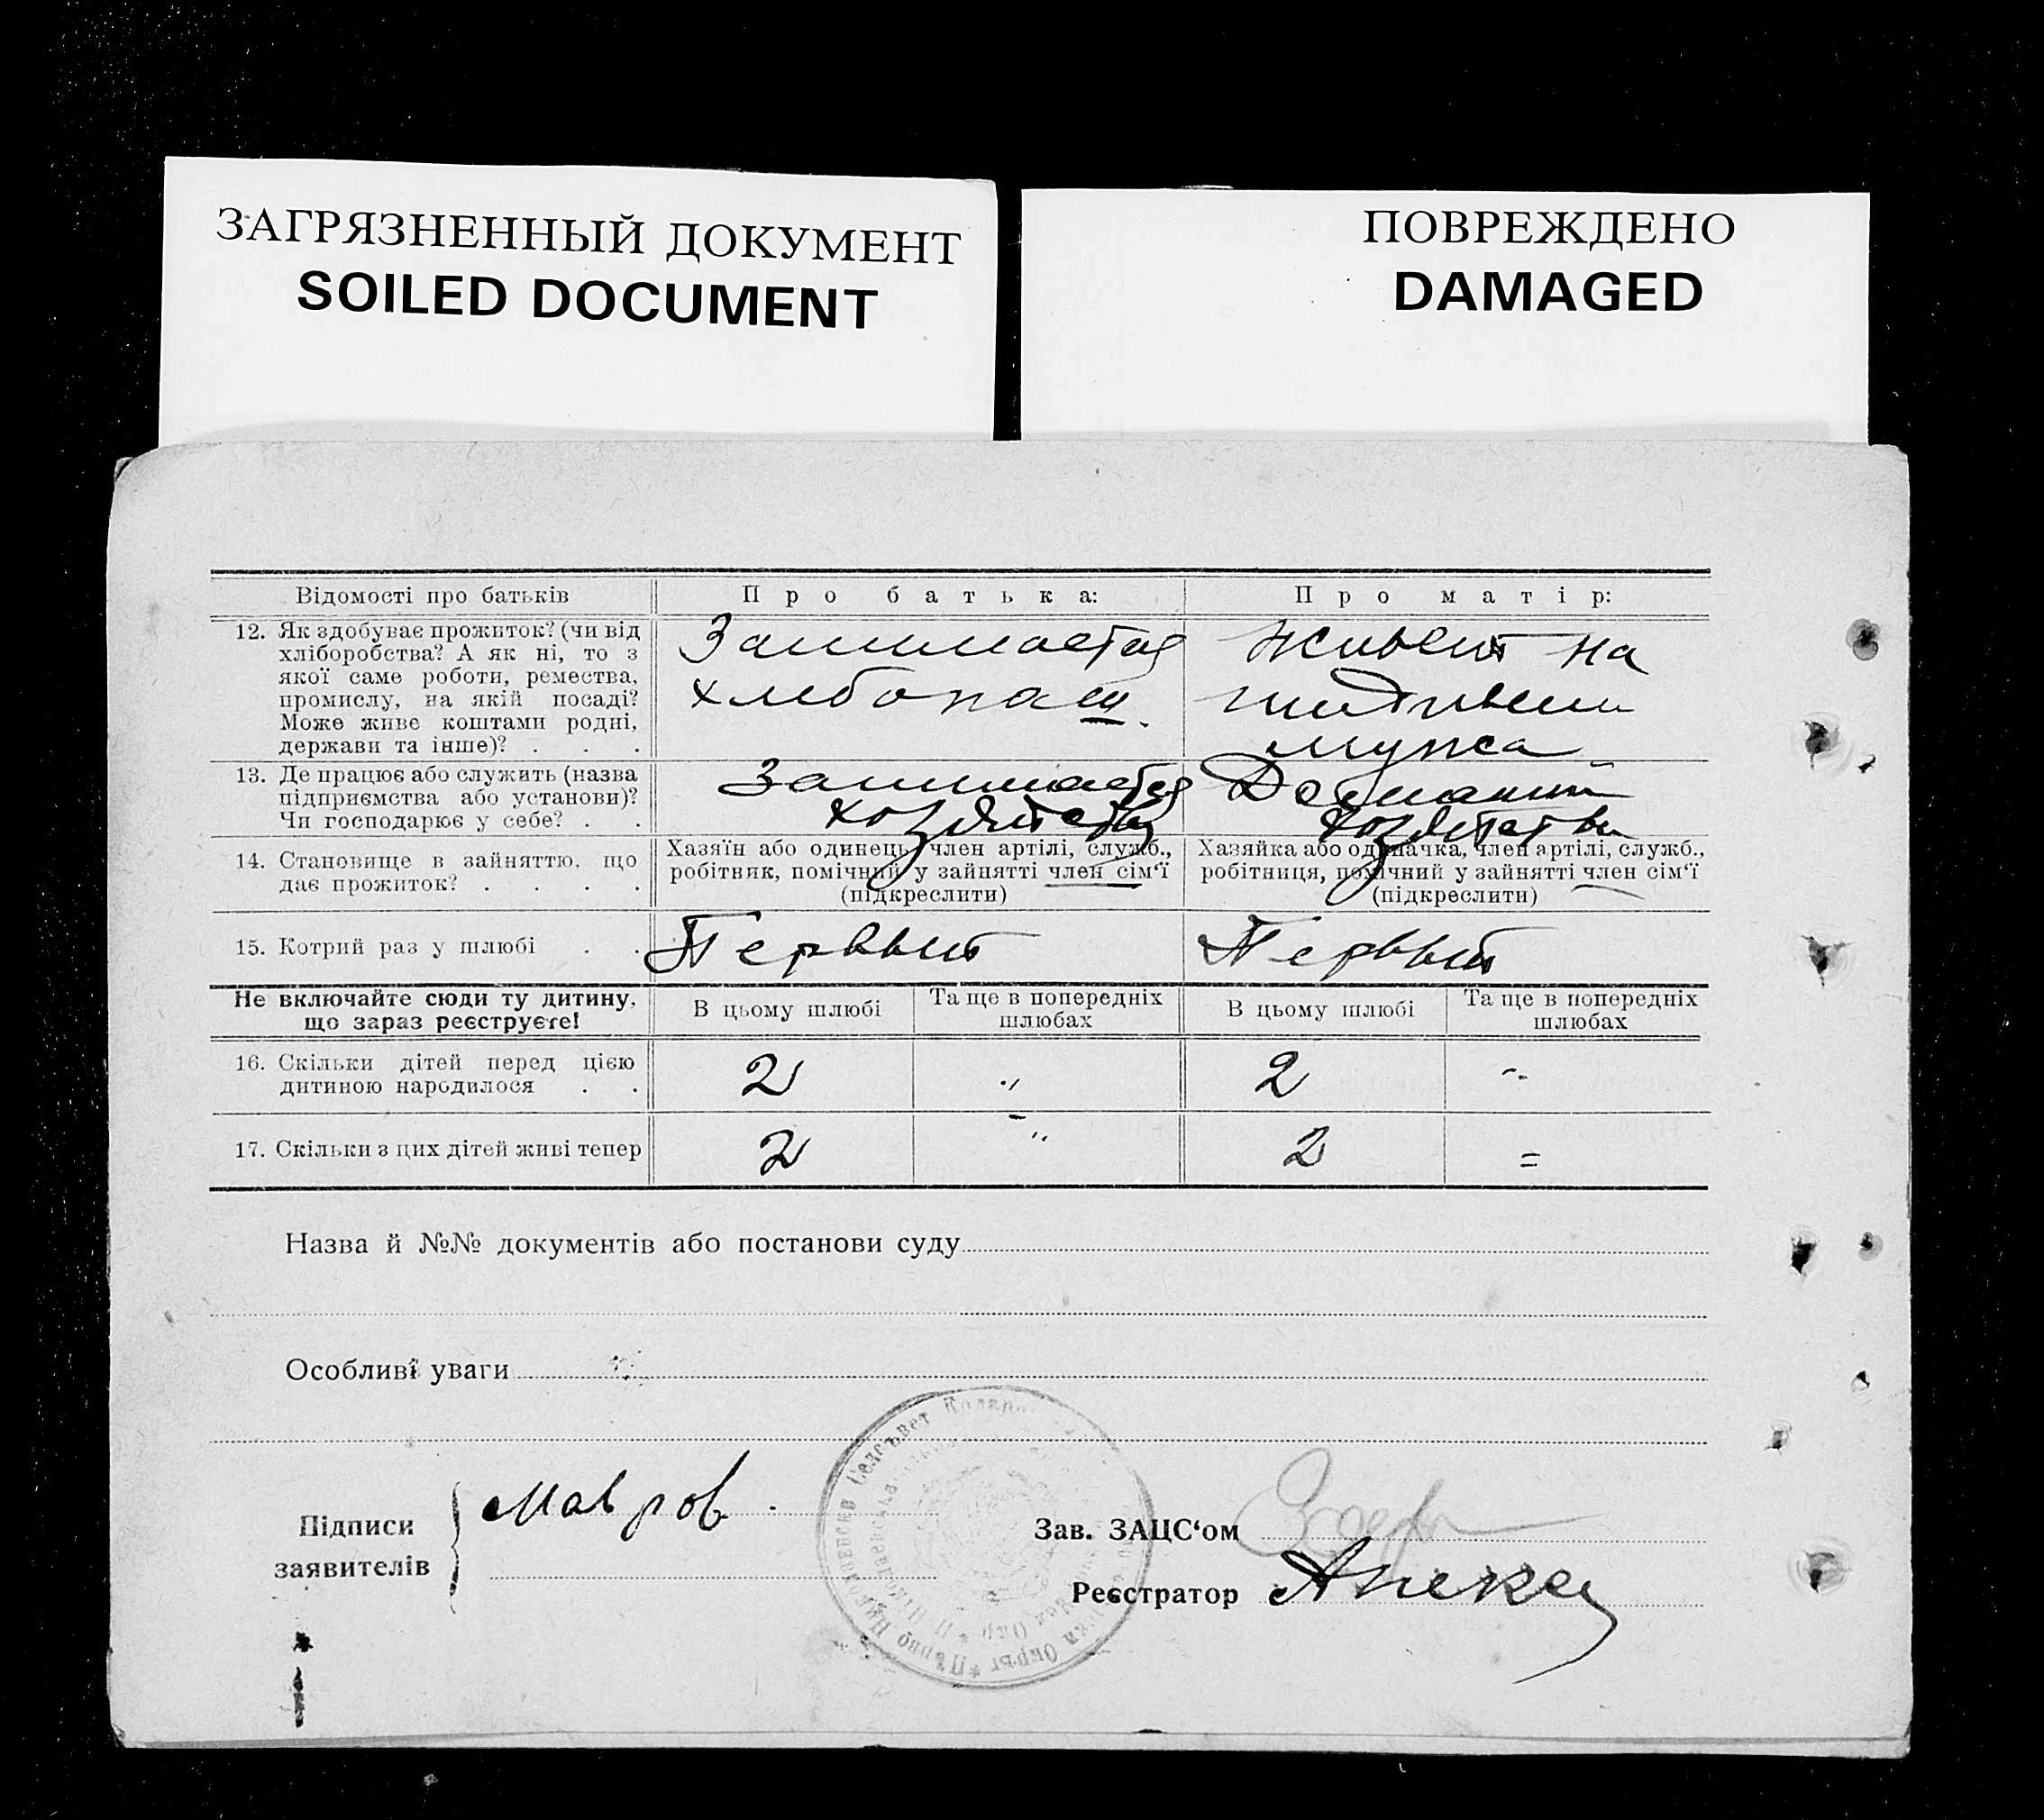 ЗАГРЯЗНЕННЫЙ ДОКУМЕНТ
SOILED DOCUMENT
ПОВРЕЖДЕНО
DAMAGED
Відомості про батьків
Про батька:
Про матір:
12. Як здобуває прожиток? (чи від
хліборобства? А як ні, то з
якої саме роботи, ремества,
промислу, на якій посаді?
Може живе коштами родні,
держави та інше)? . . .
Занимается
хлебопаш.
живет на
иждивении
мужа
13. Де працює або служить (назва
підприємства або установи)?
Чи господарює у себе? . .
Занимается
Домашним
14. Становище в зайняттю, що
дає прожиток? . . . .
Хазяїн або одинець, член артілі, служб.,
робітник, помічний у зайнятті член сім‘ї
(підкреслити)
Хазяйка або одиначка, член артілі, служб.,
робітниця, помічний у зайнятті член сім‘ї
(підкреслити)
15. Котрий раз у шлюбі . .
Первый
Первый
Не включайте сюди ту дитину,
що зараз реєструєте!
В цьому шлюбі
Та ще в попередніх
шлюбах
В цьому шлюбі
Та ще в попередніх
шлюбах
16. Скільки дітей перед цією
дитиною народилося . .
2
2
17. Скільки з цих дітей живі тепер
2
2
=
Назва й №№ документів або постанови суду
Особливі уваги
Підписи
заявителів
Мавров.
Зав. ЗАЦС‘ом
Реєстратор
Сельсъвет